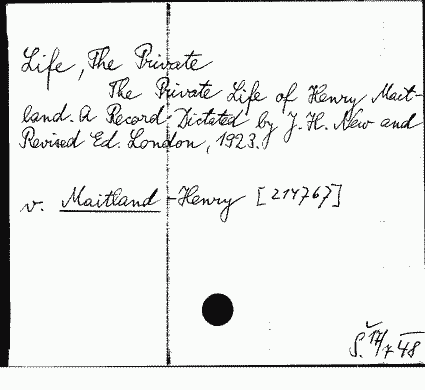 Life, The Private
The Private Life of Henry Mait-
land. A Record Dictated by J. H. New and
Revised Ed. London, 1923.
v. Maitland-Henry [214767]
Š. 17/7 48